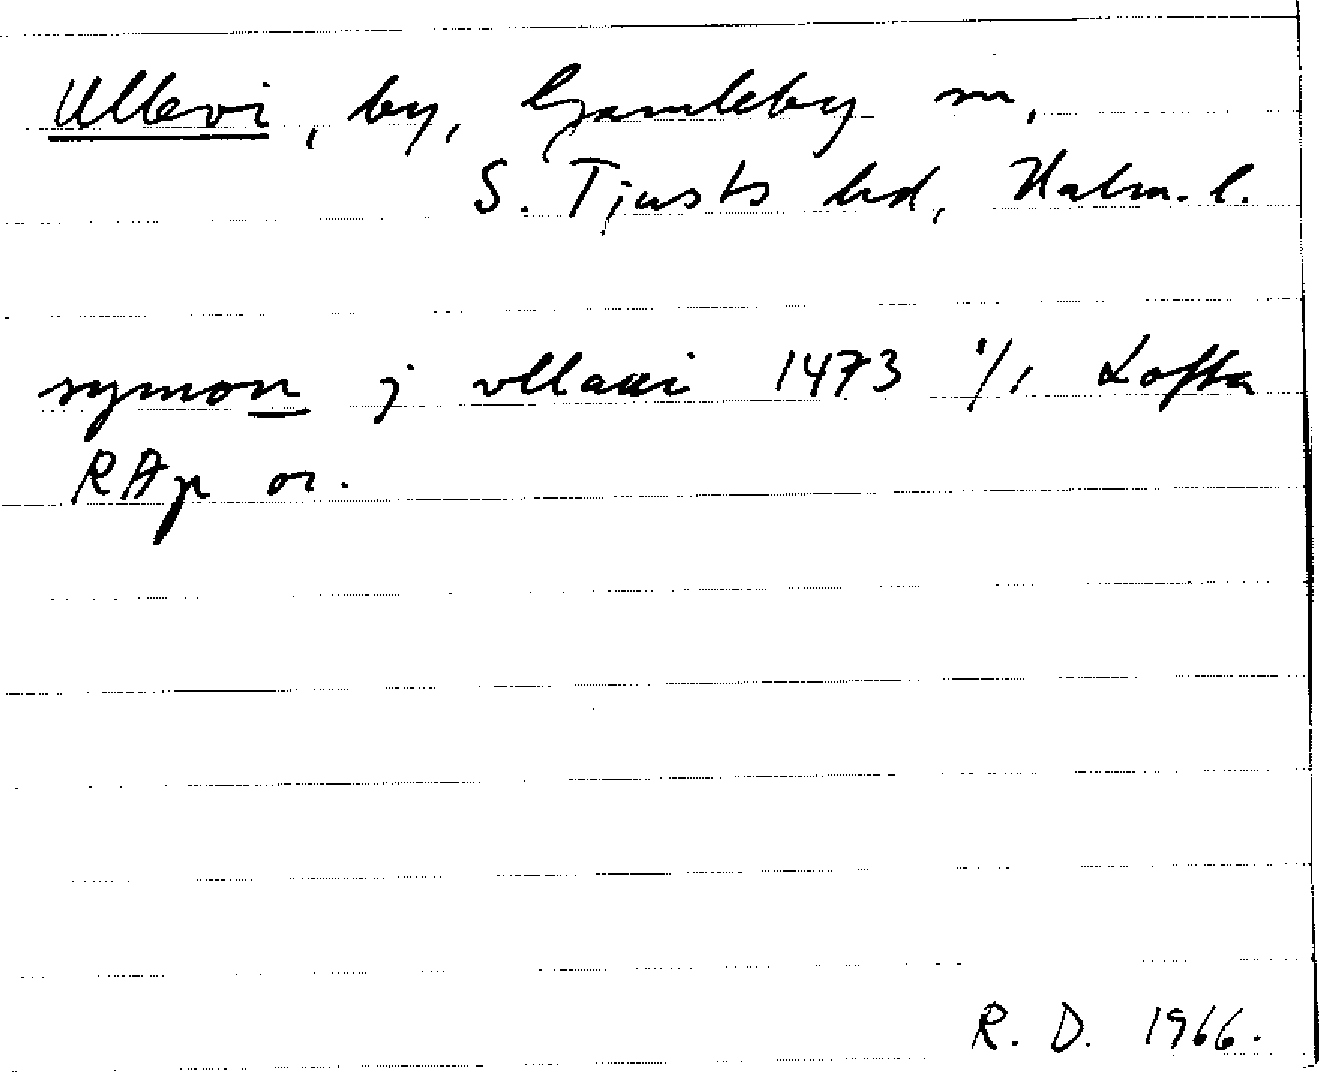 Ullevi, by, Gamleby sn,
S. Tjusts hd, Kalm. l.
symon j vllaui 1473 1/1 Lofta
RAp or.
R. D. 1966.